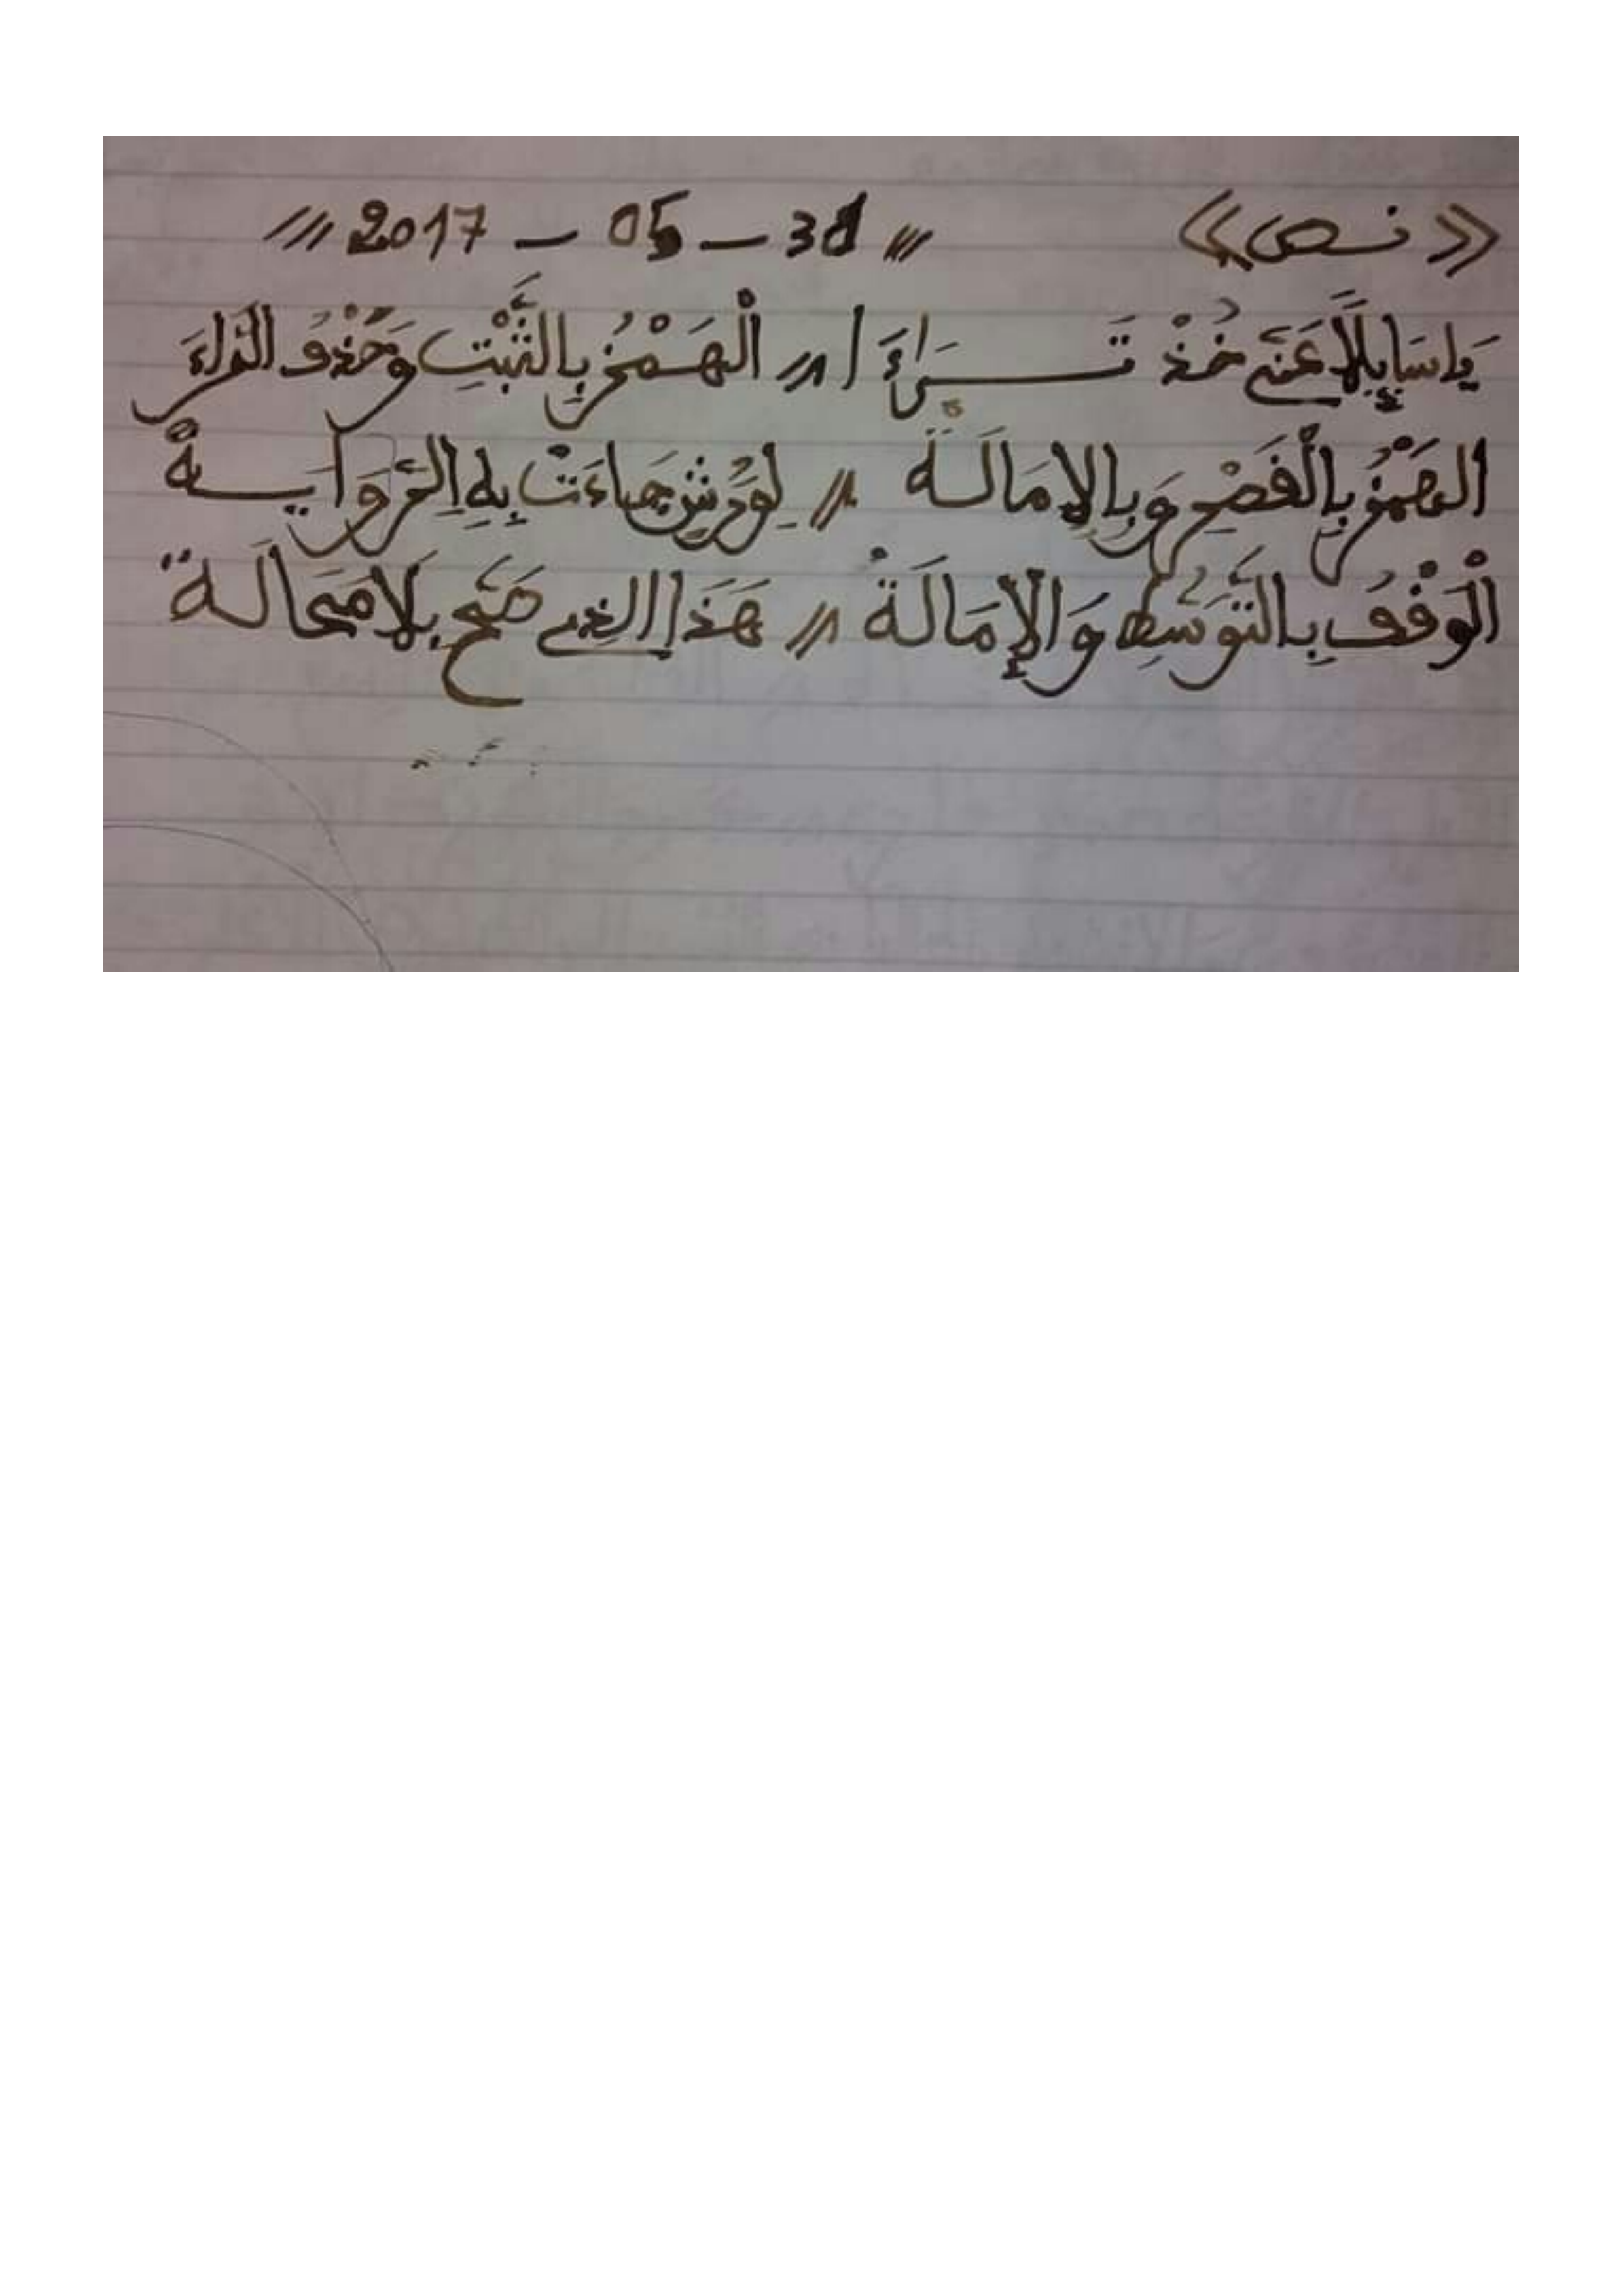 《 نص 》 /// 31 - 05 - 2017 ///
يَا سَايِٕلًا عَنِّے خُذْ تَـــرَاءَ ا // الْهَمْزُ بِالثَّبْتِ وَحُذْفُ الرَّاءَ
الهَمْزُ بِالْفَصْحِ وَبِالإِمَالَـة // لِوَرْشٍ جَاءَتْ بِهِ الرِّوَايَـــةْ
الْوَقْفُ بِالتَّوَسُّطِ وَالإِمَالَةْ // هَذَا الذِے صَحَّ بِلَا مَحَالَـة